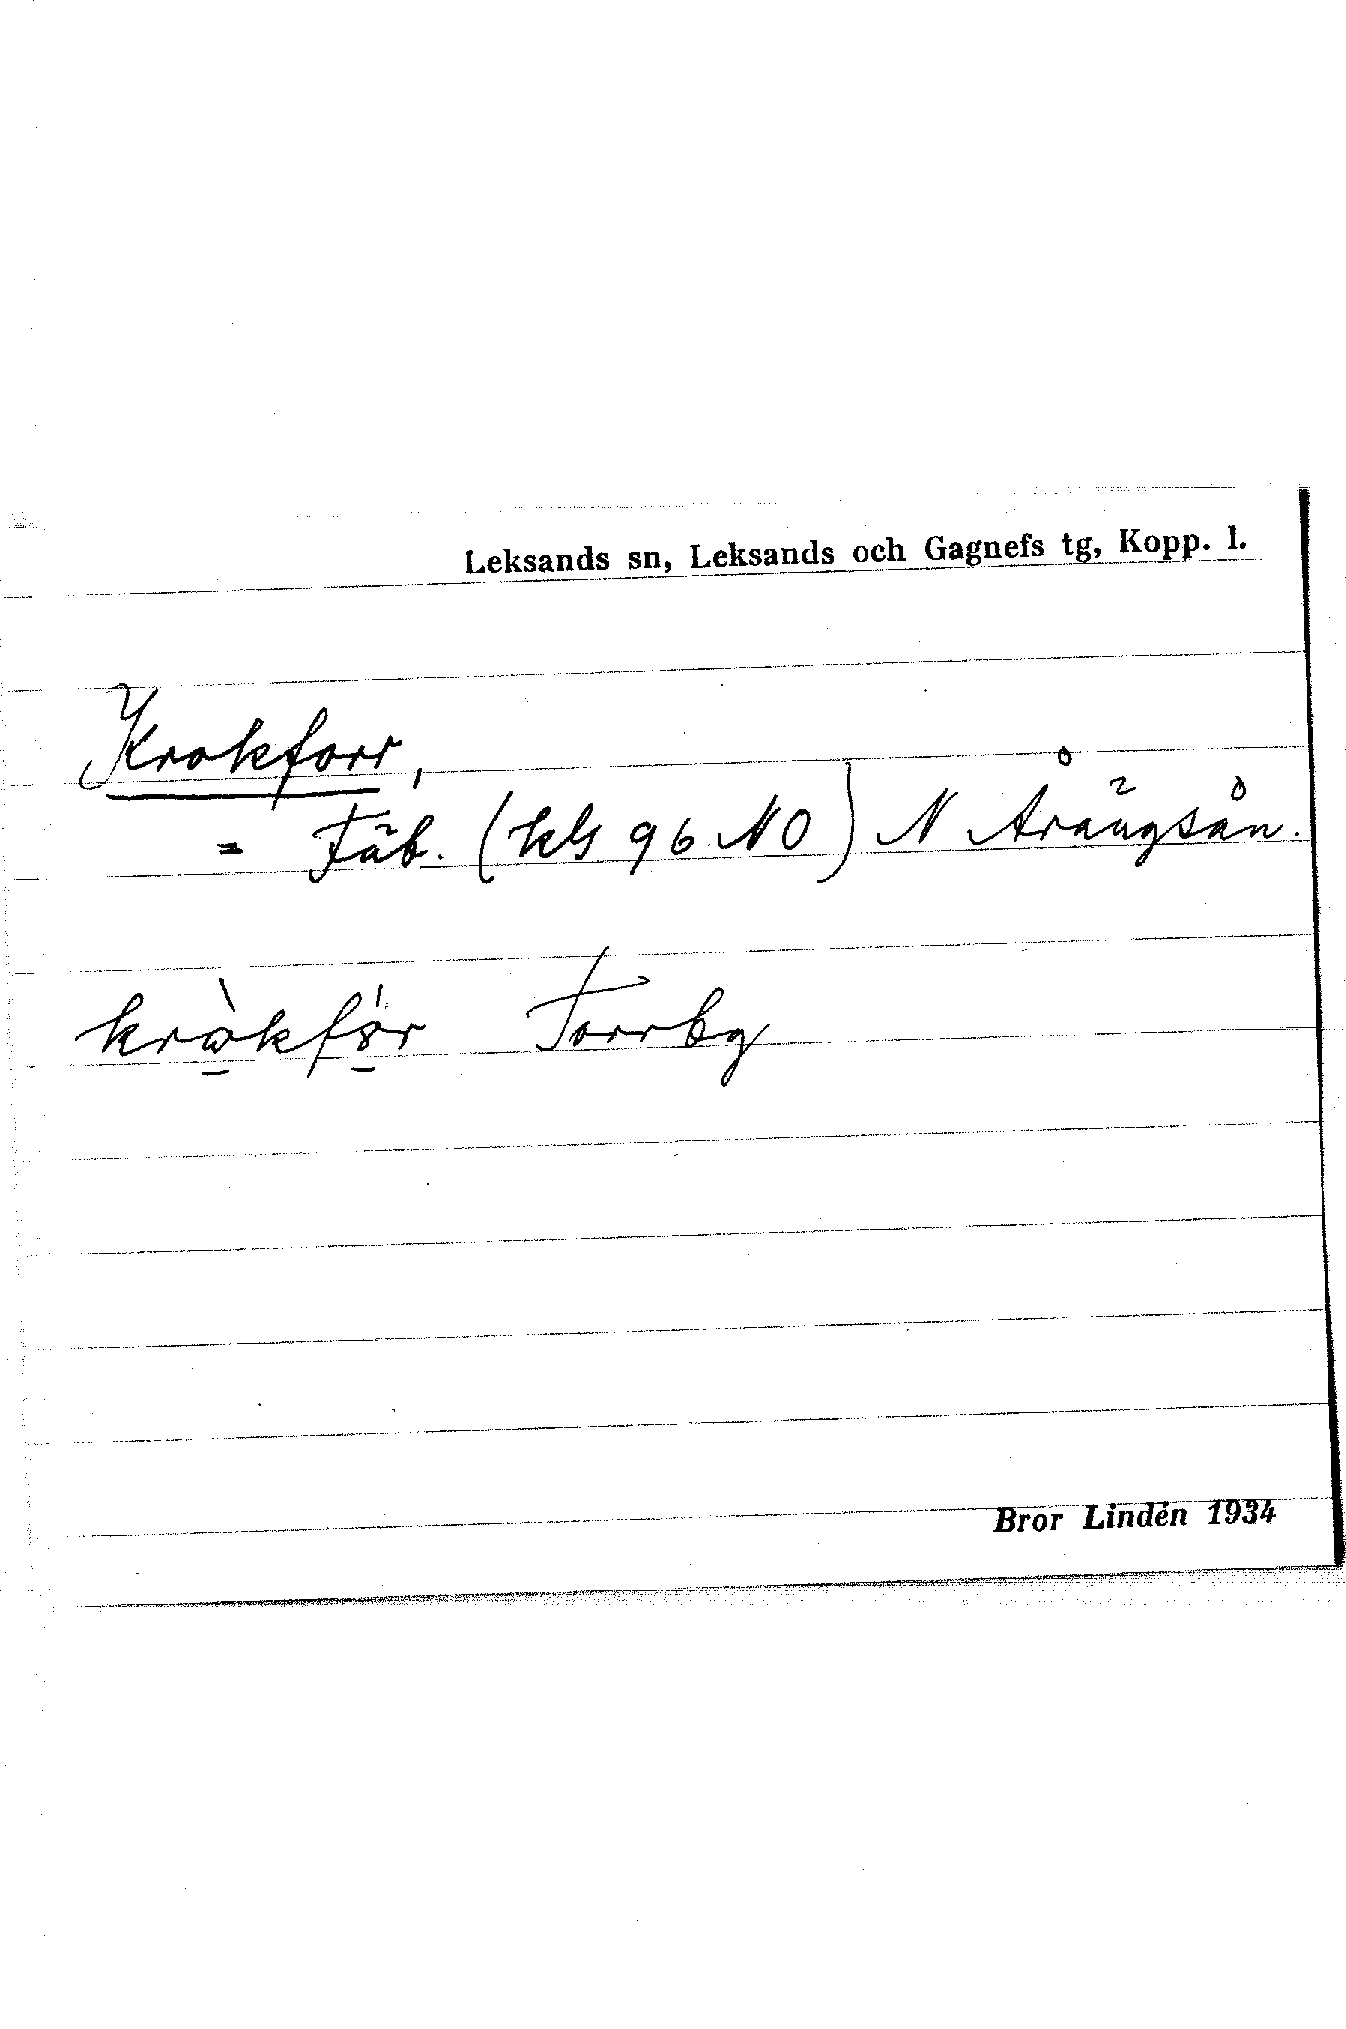 Leksands sn, Leksands och Gagnefs tg, Kopp. l.
Krokforr,
= Fäb. (kbl 96 NO) N Årängsån.
krò̱kfö̱́r Torrbg
Bror Lindén 1934